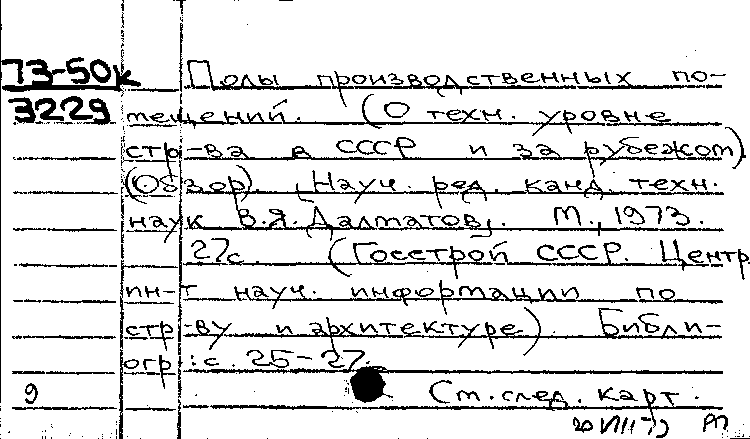 73-50к Полы производственных по-
3229 мещений. (О техн. уровне
стр-ва в СССР и за рубежом)
(Обзор). [Науч. ред. канд. техн.
наук В.Я. Далматов]. М., 1973.
27с. (Госстрой СССР. Центр
ин-т науч. информации по
стр-ву и архитектуре). Библи-
огр.: с. 25-27.
9 См. след. карт.